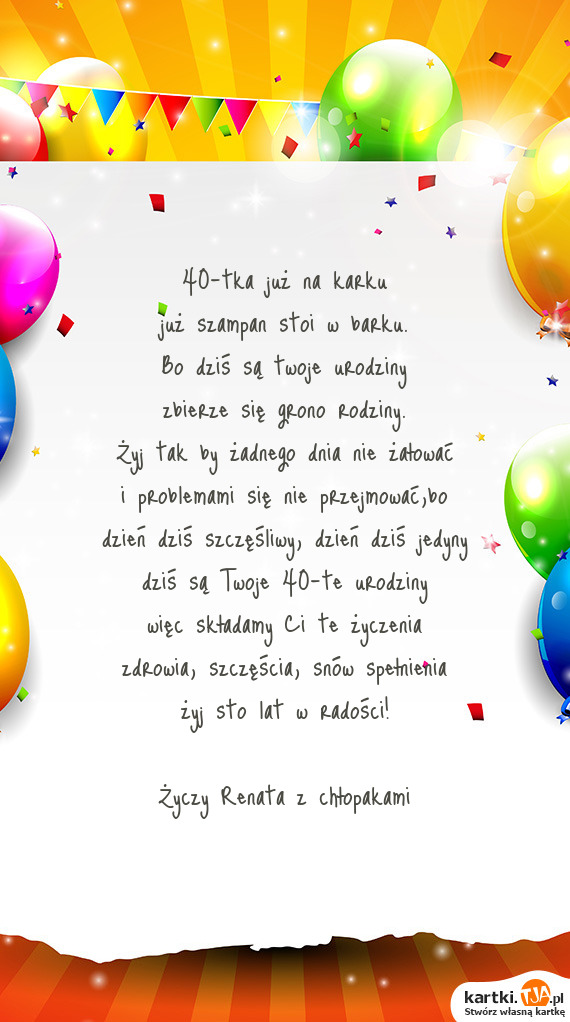 40-tka już na karku
już szampan stoi w barku.
Bo dziś są twoje urodziny
zbierze się grono rodziny.
Żyj tak by żadnego dnia nie żałować
i problemami się nie przejmować,bo
dzień dziś szczęśliwy, dzień dziś jedyny
dziś są Twoje 40-te urodziny
więc składamy Ci te życzenia
zdrowia, szczęścia, snów spełnienia
żyj sto lat w radości!
Życzy Renata z chłopakami
kartki.TJA.pl
Stwórz własną kartkę